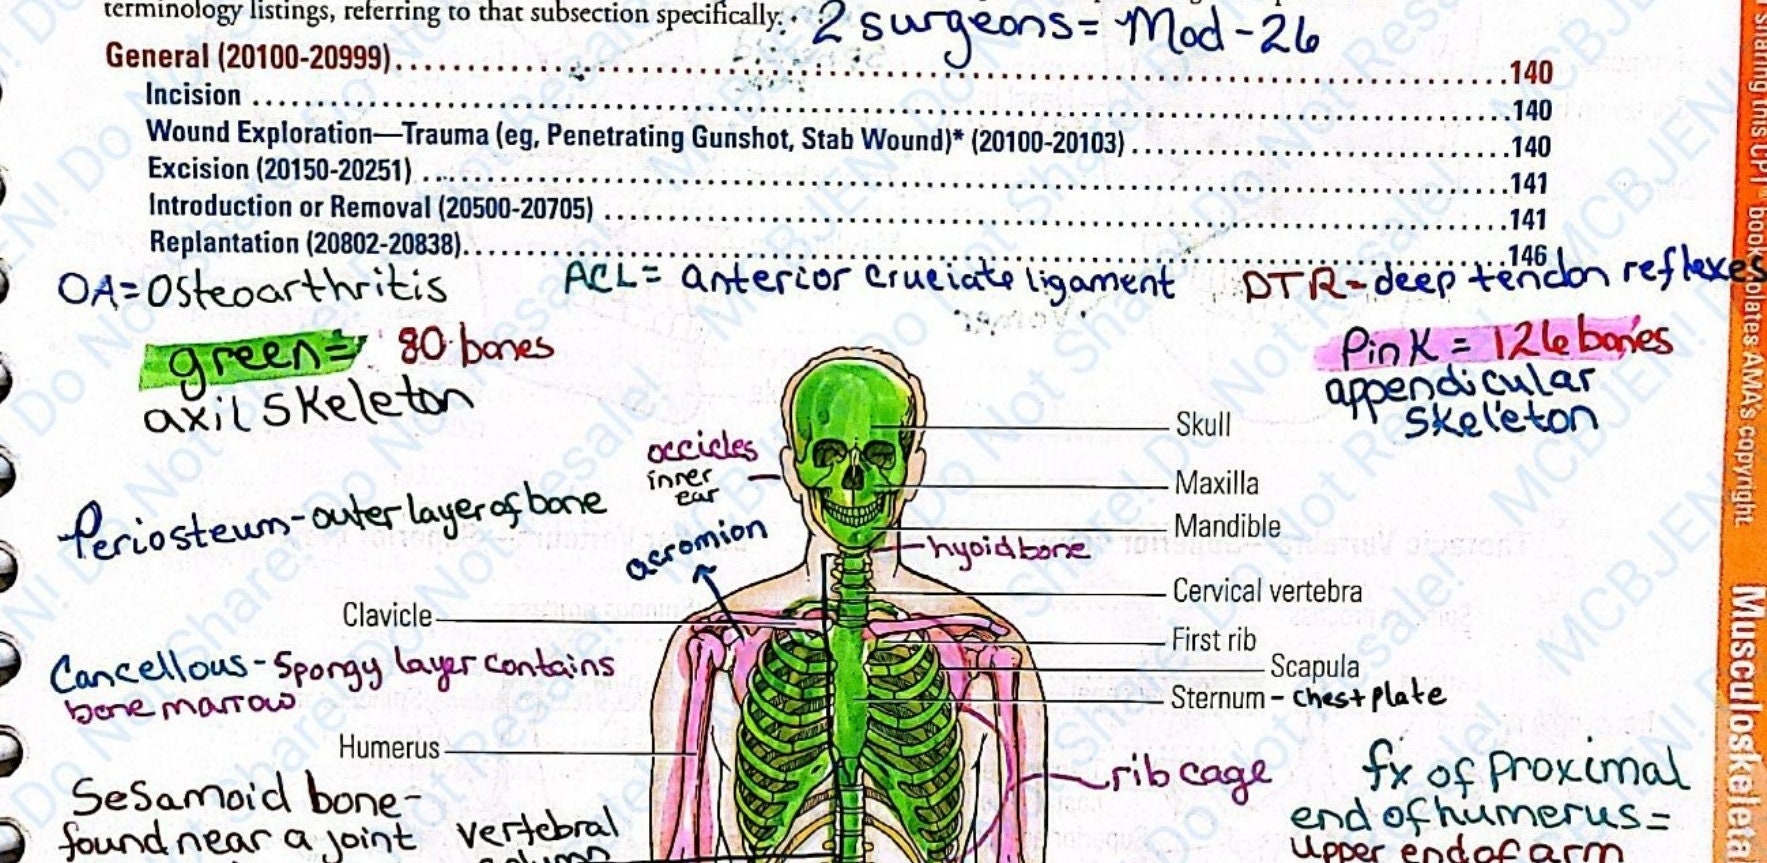 terminology listings, referring to that subsection specifically.
2 surgeons = Mod-26
General (20100-20999) 140
Incision 140
Wound Exploration—Trauma (eg, Penetrating Gunshot, Stab Wound)* (20100-20103) 140
Excision (20150-20251) 141
Introduction or Removal (20500-20705) 141
Replantation (20802-20838) 146
OA=Osteoarthritis
ACL= anterior cruciate ligament
DTR-deep tendon reflexes
green= 80 bones
axil skeleton
Pink = 126 bones
appendicular
skeleton
Skull
occicles
inner
ear
Maxilla
Periosteum-outer layer of bone
Mandible
acromion
hyoid bone
Cervical vertebra
Clavicle
First rib
Cancellous-Spongy layer contains
bone marrow
Scapula
Sternum - chest plate
Humerus
rib cage
fx of proximal
end of humerus =
upper end of arm
Sesamoid bone-
found near a joint
vertebral
column
sharing this CPT® book violates AMA's copyright
Musculoskeletal
MCBJEN! Do Not Share! Do Not Resale!